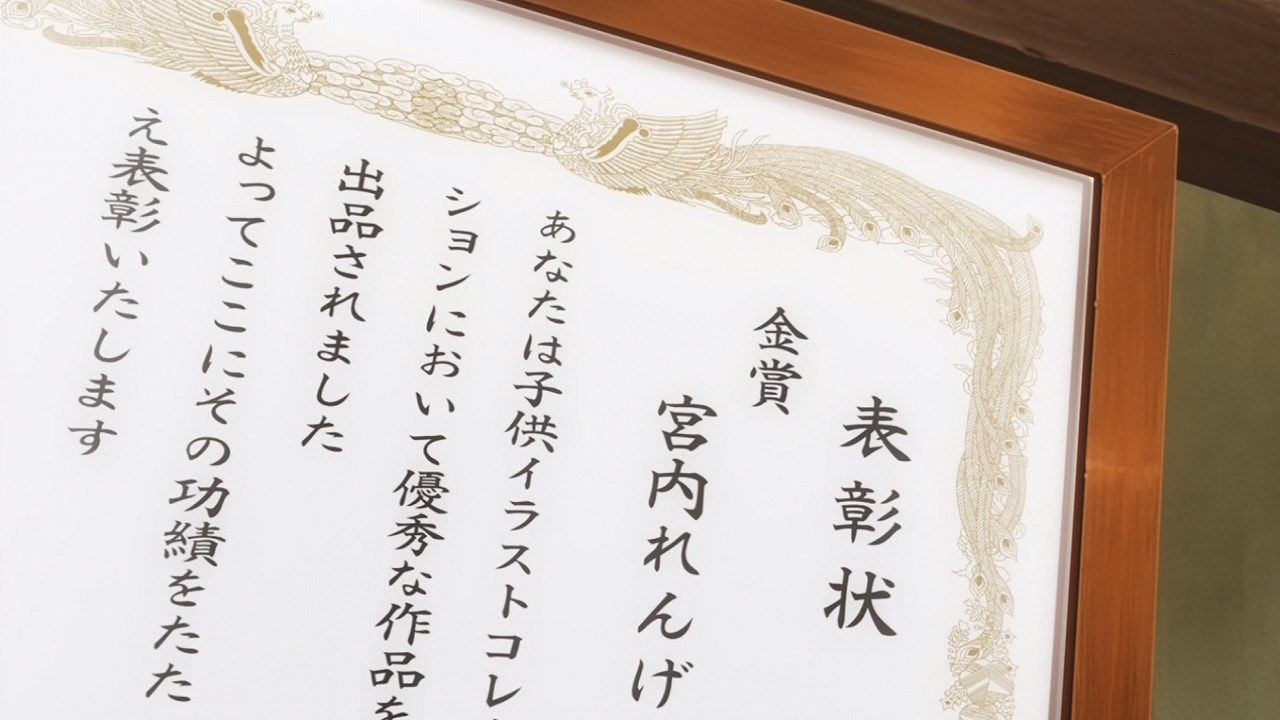 表彰状
金賞
宮内れんげ
あなたは子供イラストコレ
ションにおいて優秀な作品を
出品されました
よってここにその功績をたた
え表彰いたします